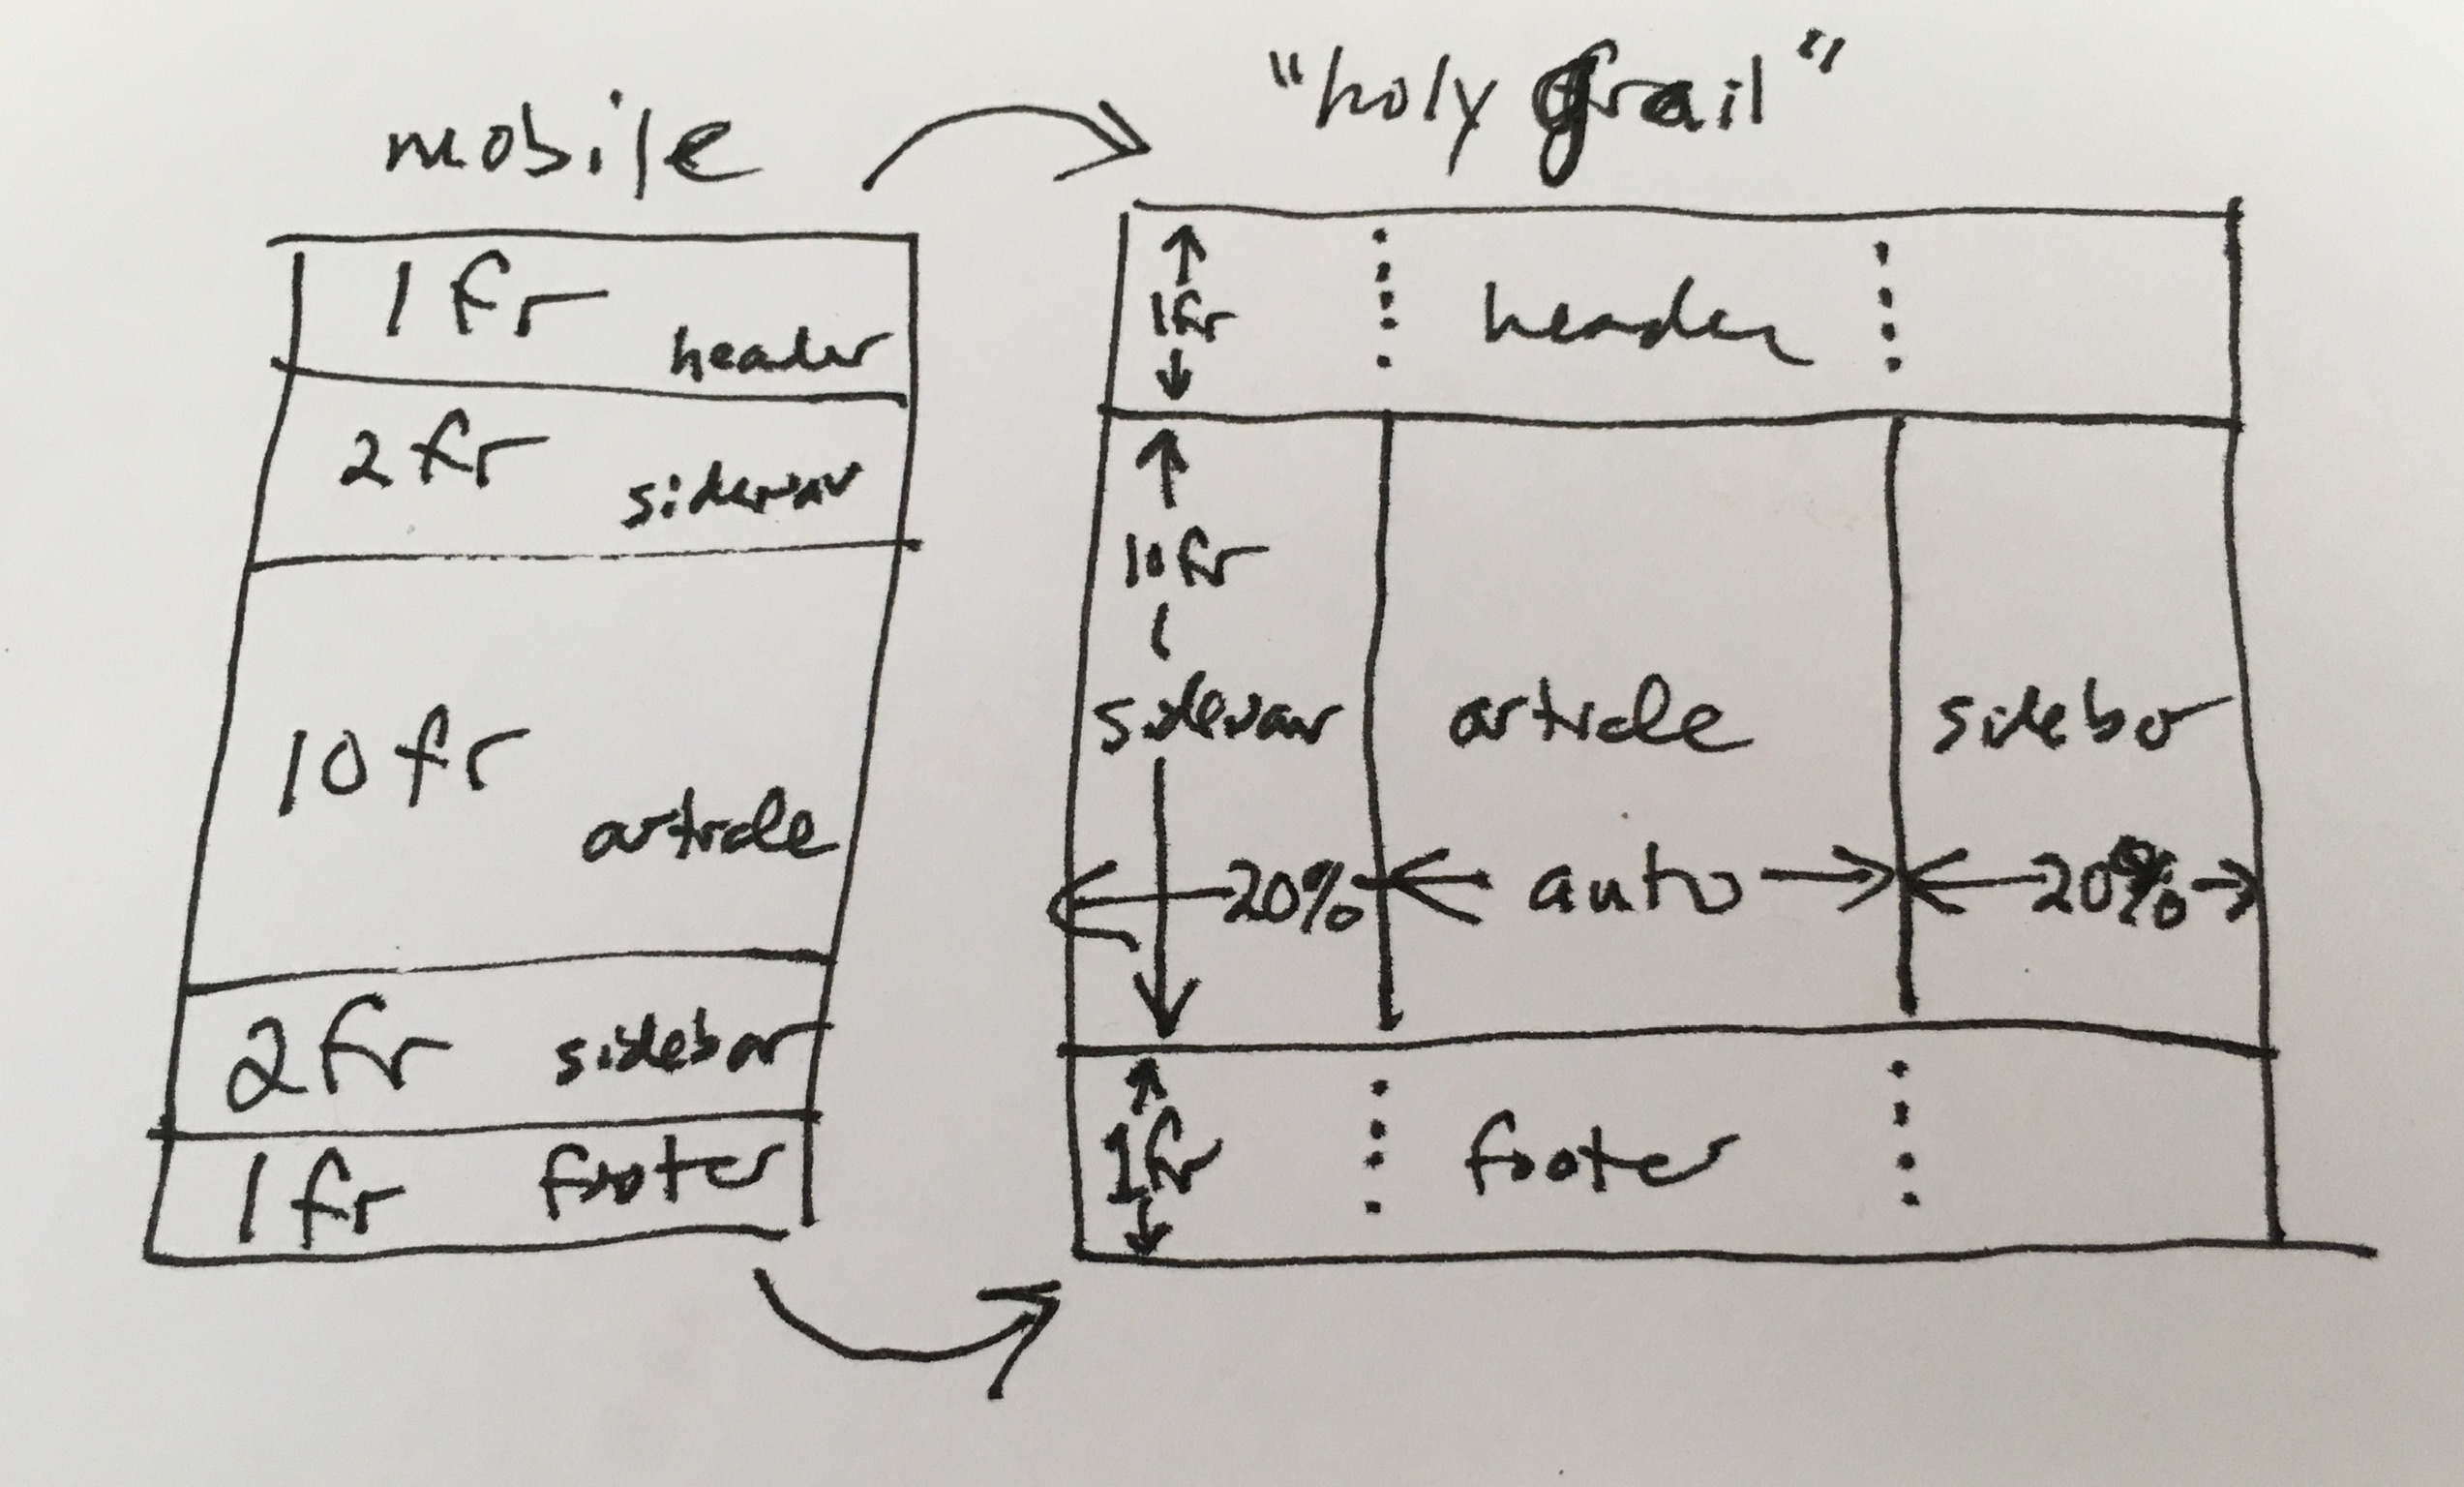 mobile
"holy grail"
1fr
header
2fr
sidenav
10fr
article
2fr sidebar
1fr footer
1fr
header
10fr
sidenav
article
sidebar
20%
auto
20%
1fr
footer